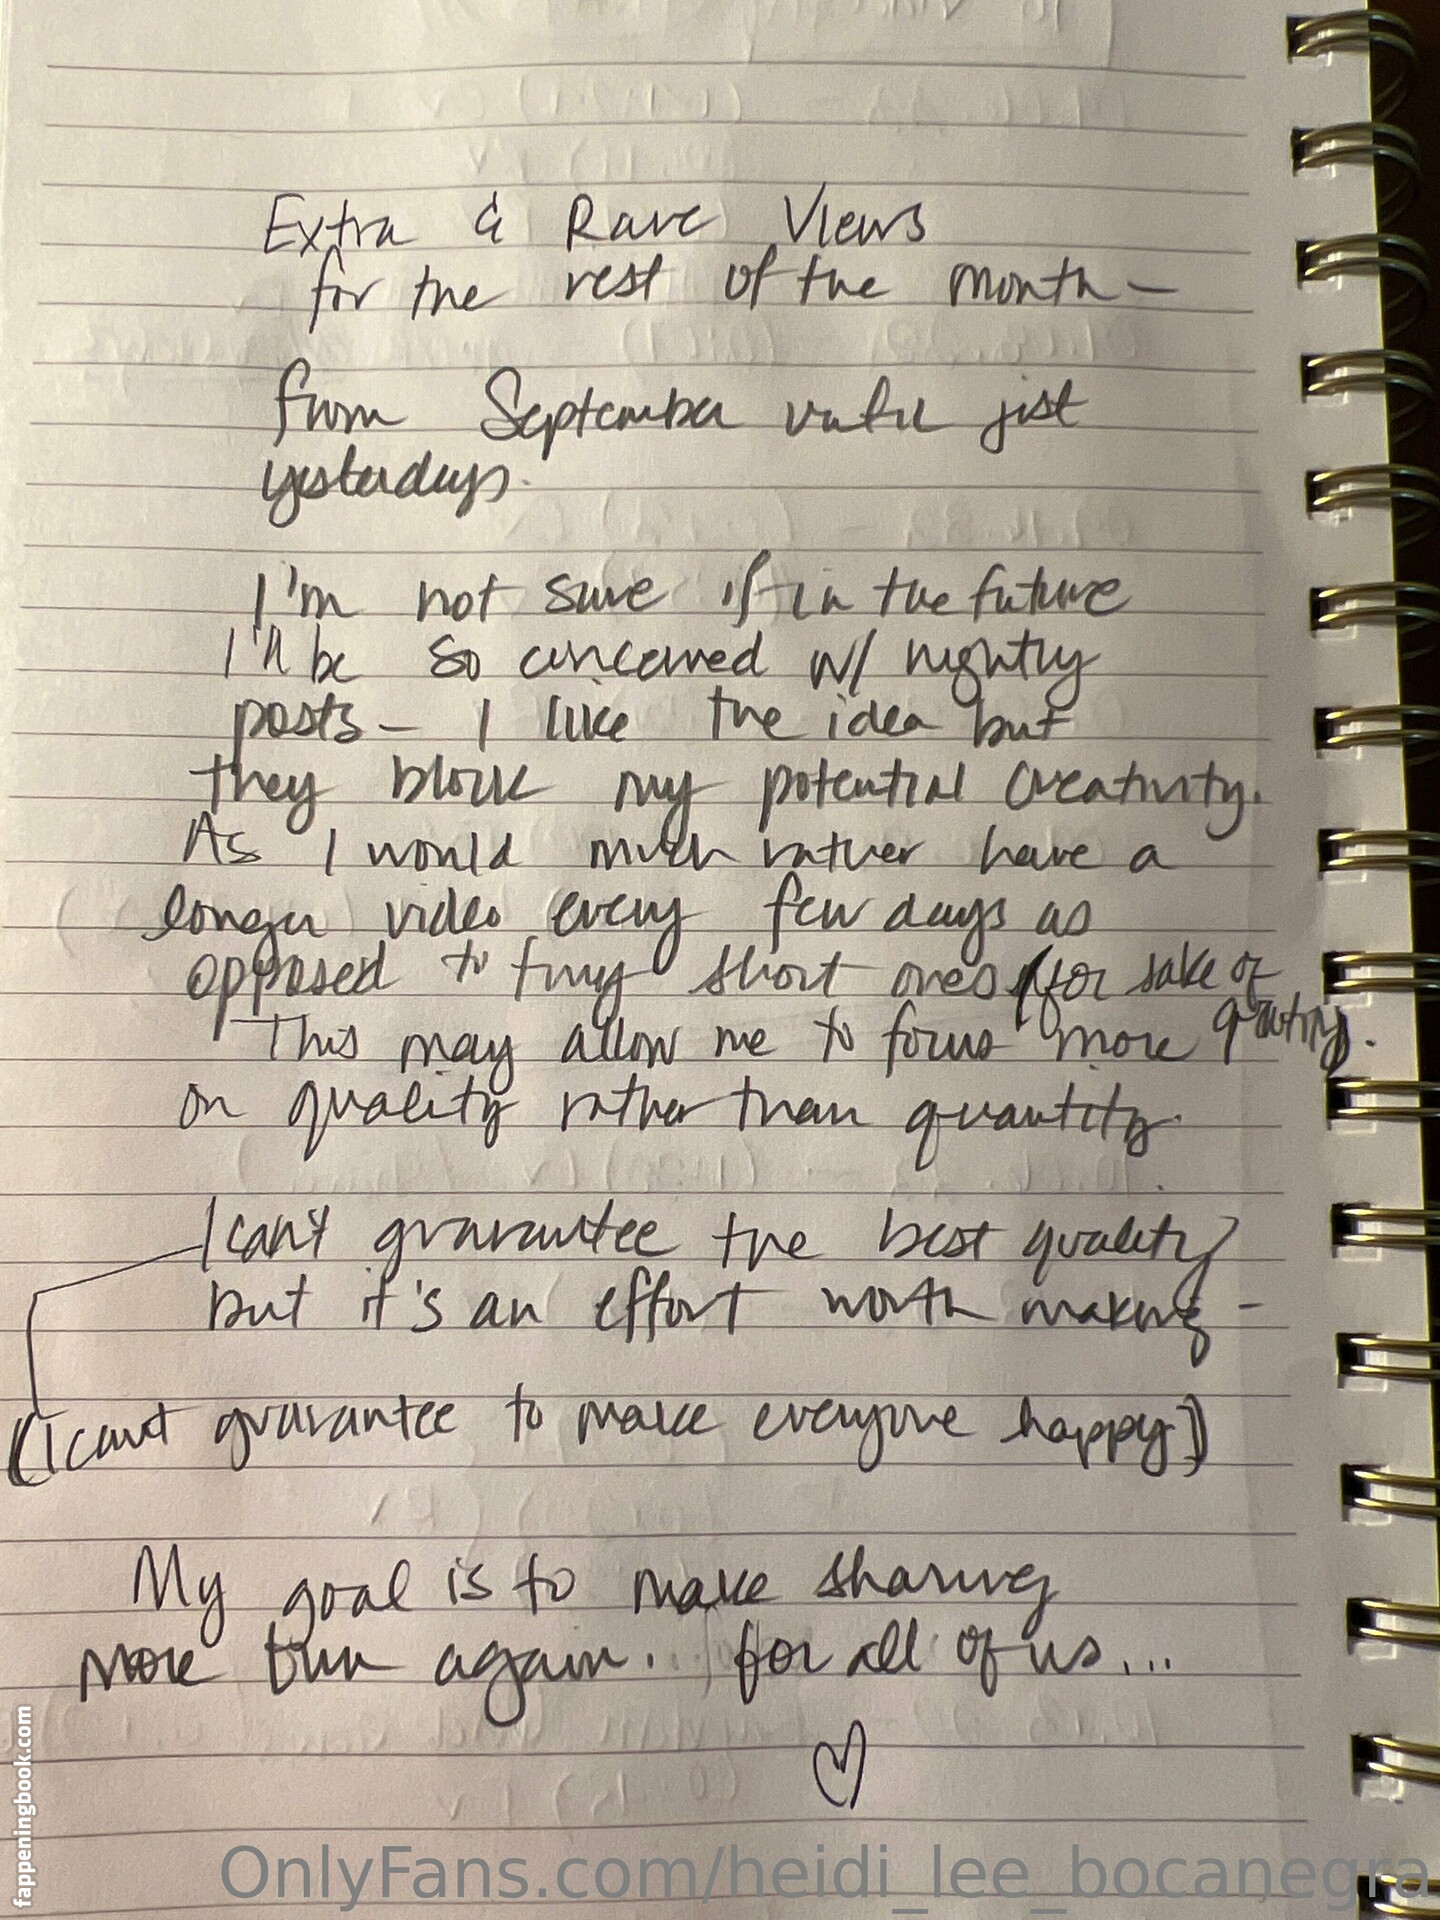 Extra & Rare Views
for the rest of the month –
from September until just
yesterday.
I'm not sure if in the future
I'll be so concerned w/ nightly
posts – I like the idea but
they block my potential creativity.
As I would much rather have a
longer video every few days as
opposed to tiny short ones (for sake of
quantity.
This may allow me to focus more
on quality rather than quantity.
I can't guarantee the best quality
but it's an effort worth making –
(I can't guarantee to make everyone happy)
My goal is to make sharing
more fun again... for all of us...
fappeningbook.com
OnlyFans.com/heidi_lee_bocanegra